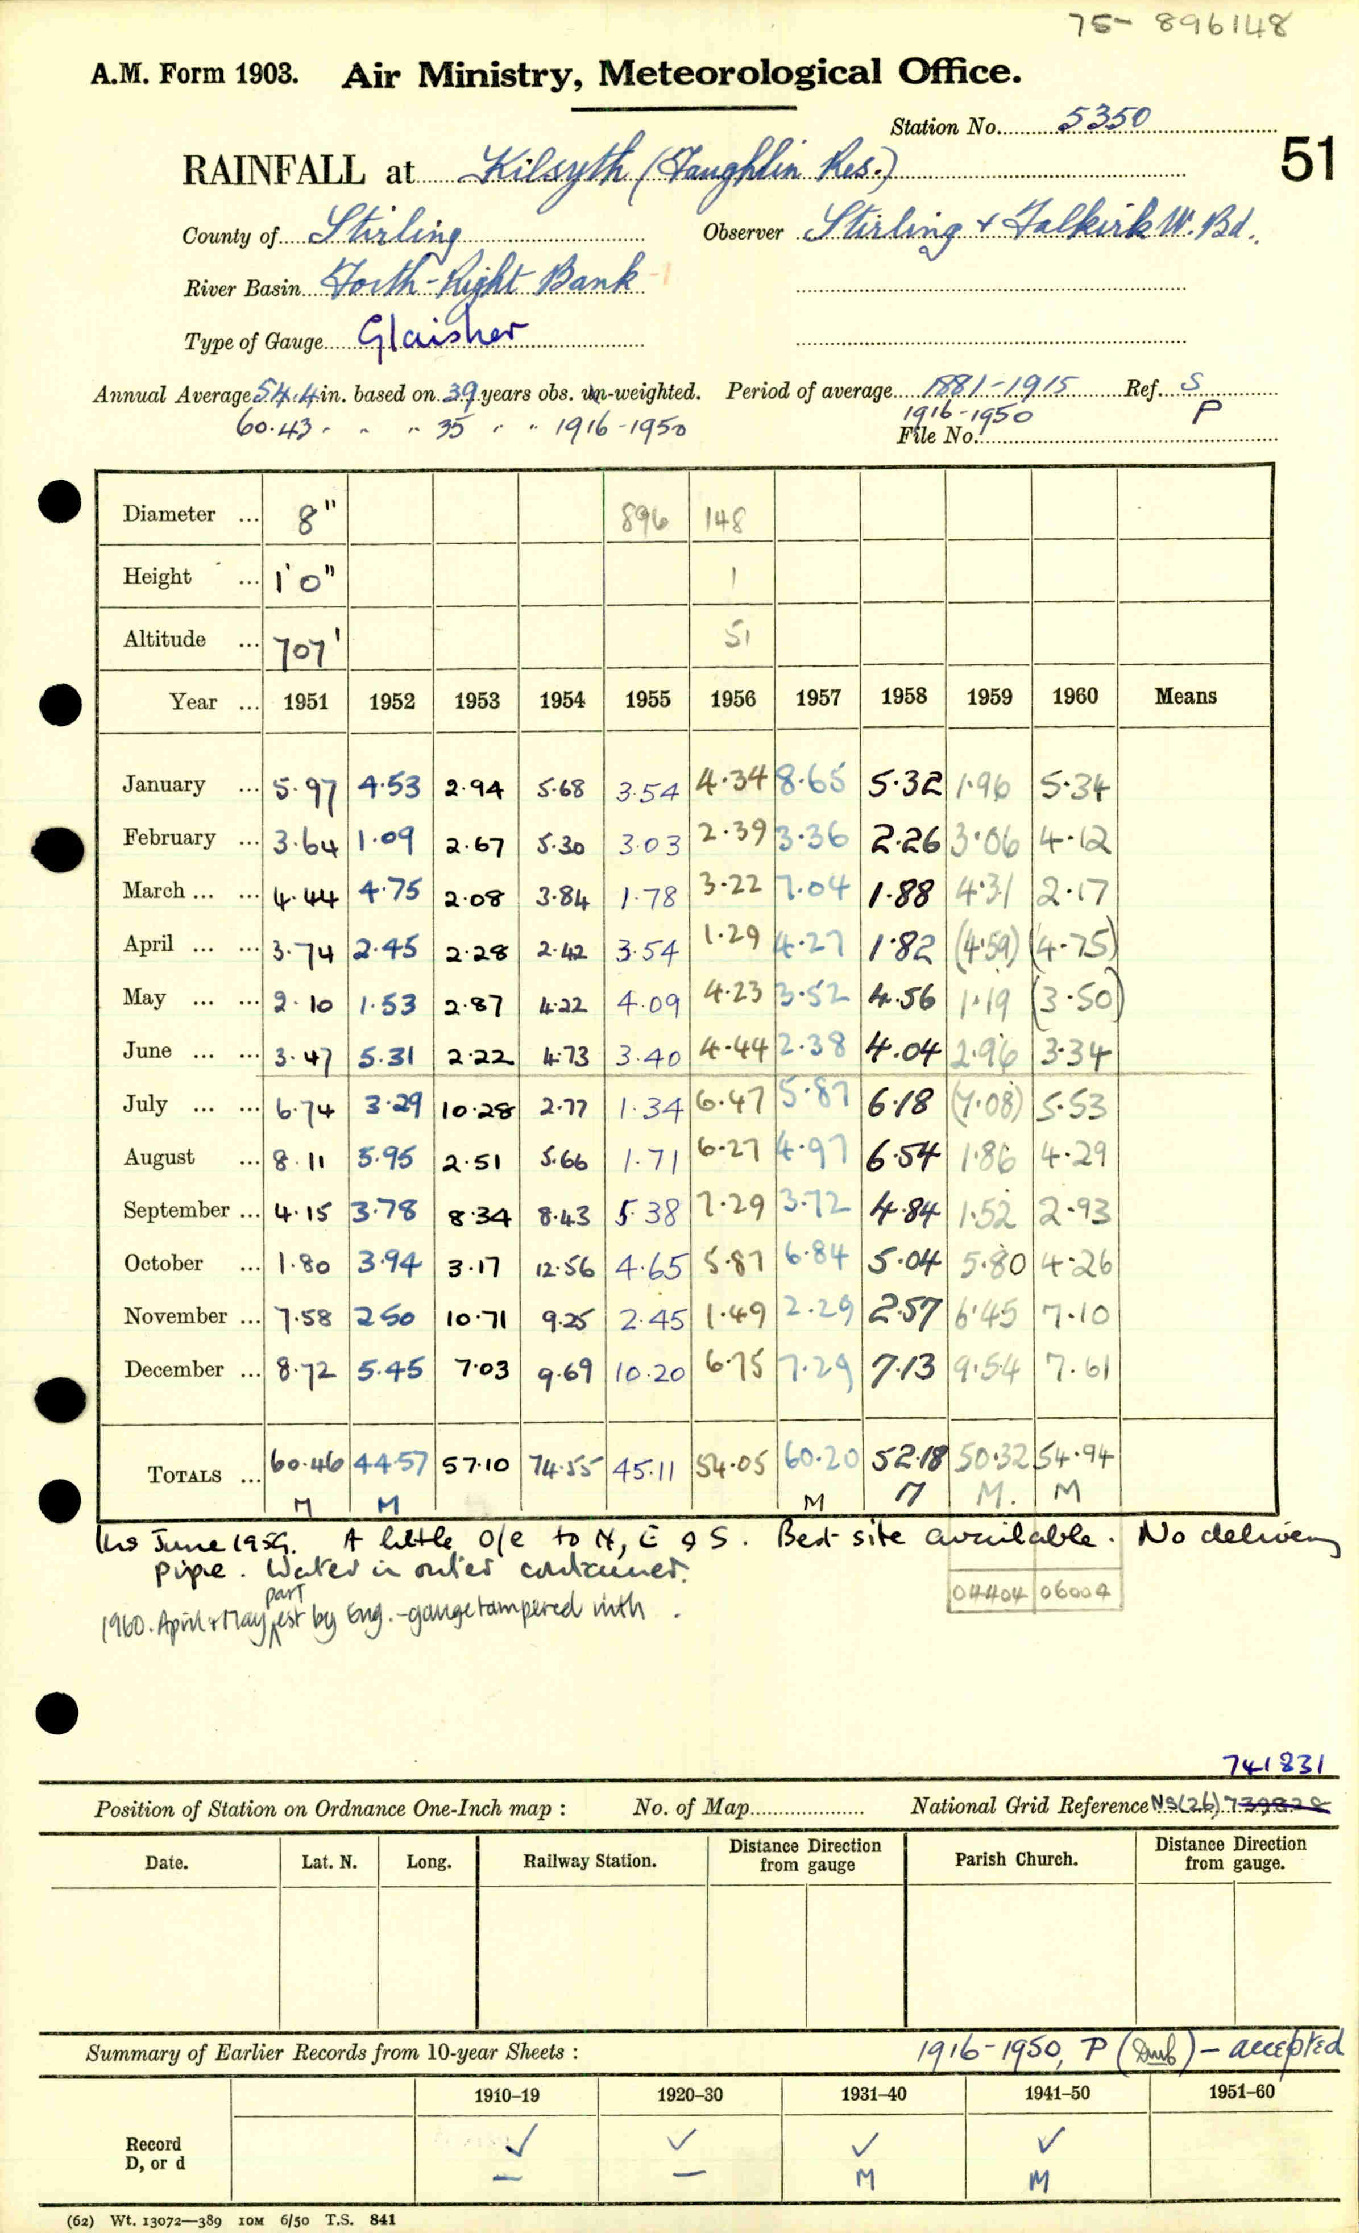 75- 896148
A.M. Form 1903. Air Ministry, Meteorological Office.
Station No. 5350
51
RAINFALL at Kilsyth (Faughlin Res.)
County of Stirling Observer Stirling & Falkirk W. Bd.
River Basin Forth-Right Bank -1
Type of Gauge Glaisher
Annual Average 54.4 in. based on 39 years obs. un-weighted. Period of average 1881-1915 Ref. S
60.43 " " " 35 " " 1916-1950 1916-1950 P
File No.
Diameter ... 8" 896 148
Height ... 1'0" 1
Altitude ... 707' 51
Year ... 1951 1952 1953 1954 1955 1956 1957 1958 1959 1960 Means
January ... 5.97 4.53 2.94 5.68 3.54 4.34 8.65 5.32 1.96 5.34
February ... 3.64 1.09 2.67 5.30 3.03 2.39 3.36 2.26 3.06 4.12
March ... ... 4.44 4.75 2.08 3.84 1.78 3.22 7.04 1.88 4.31 2.17
April ... ... 3.74 2.45 2.28 2.42 3.54 1.29 4.27 1.82 (4.59) (4.75)
May ... ... 2.10 1.53 2.87 4.22 4.09 4.23 3.52 4.56 1.19 (3.50)
June ... ... 3.47 5.31 2.22 4.73 3.40 4.44 2.38 4.04 2.96 3.34
July ... ... 6.74 3.29 10.28 2.77 1.34 6.47 5.87 6.18 (7.08) 5.53
August ... 8.11 5.95 2.51 5.66 1.71 6.27 4.97 6.54 1.86 4.29
September ... 4.15 3.78 8.34 8.43 5.38 7.29 3.72 4.84 1.52 2.93
October ... 1.80 3.94 3.17 12.56 4.65 5.87 6.84 5.04 5.80 4.26
November ... 7.58 2.50 10.71 9.25 2.45 1.49 2.29 2.57 6.45 7.10
December ... 8.72 5.45 7.03 9.69 10.20 6.75 7.29 7.13 9.54 7.61
TOTALS ... 60.46 44.57 57.10 74.55 45.11 54.05 60.20 52.18 50.32 54.94
M M M M M. M
Ins June 1959. A little o/e to N, E & S. Best site available. No delivery
pipe. Water in outer container.
04404 06004
1960. April & May part est by Eng. - gauge tampered with.
741831
Position of Station on Ordnance One-Inch map : No. of Map National Grid Reference NS(26) 739828
Date. Lat. N. Long. Railway Station. Distance from gauge Direction Parish Church. Distance Direction from gauge.
Summary of Earlier Records from 10-year Sheets : 1916-1950, P ( ) - accepted
1910-19 1920-30 1931-40 1941-50 1951-60
Record ✓ ✓ ✓ ✓
D, or d — — M M
(62) Wt. 13072—389 10M 6/50 T.S. 841